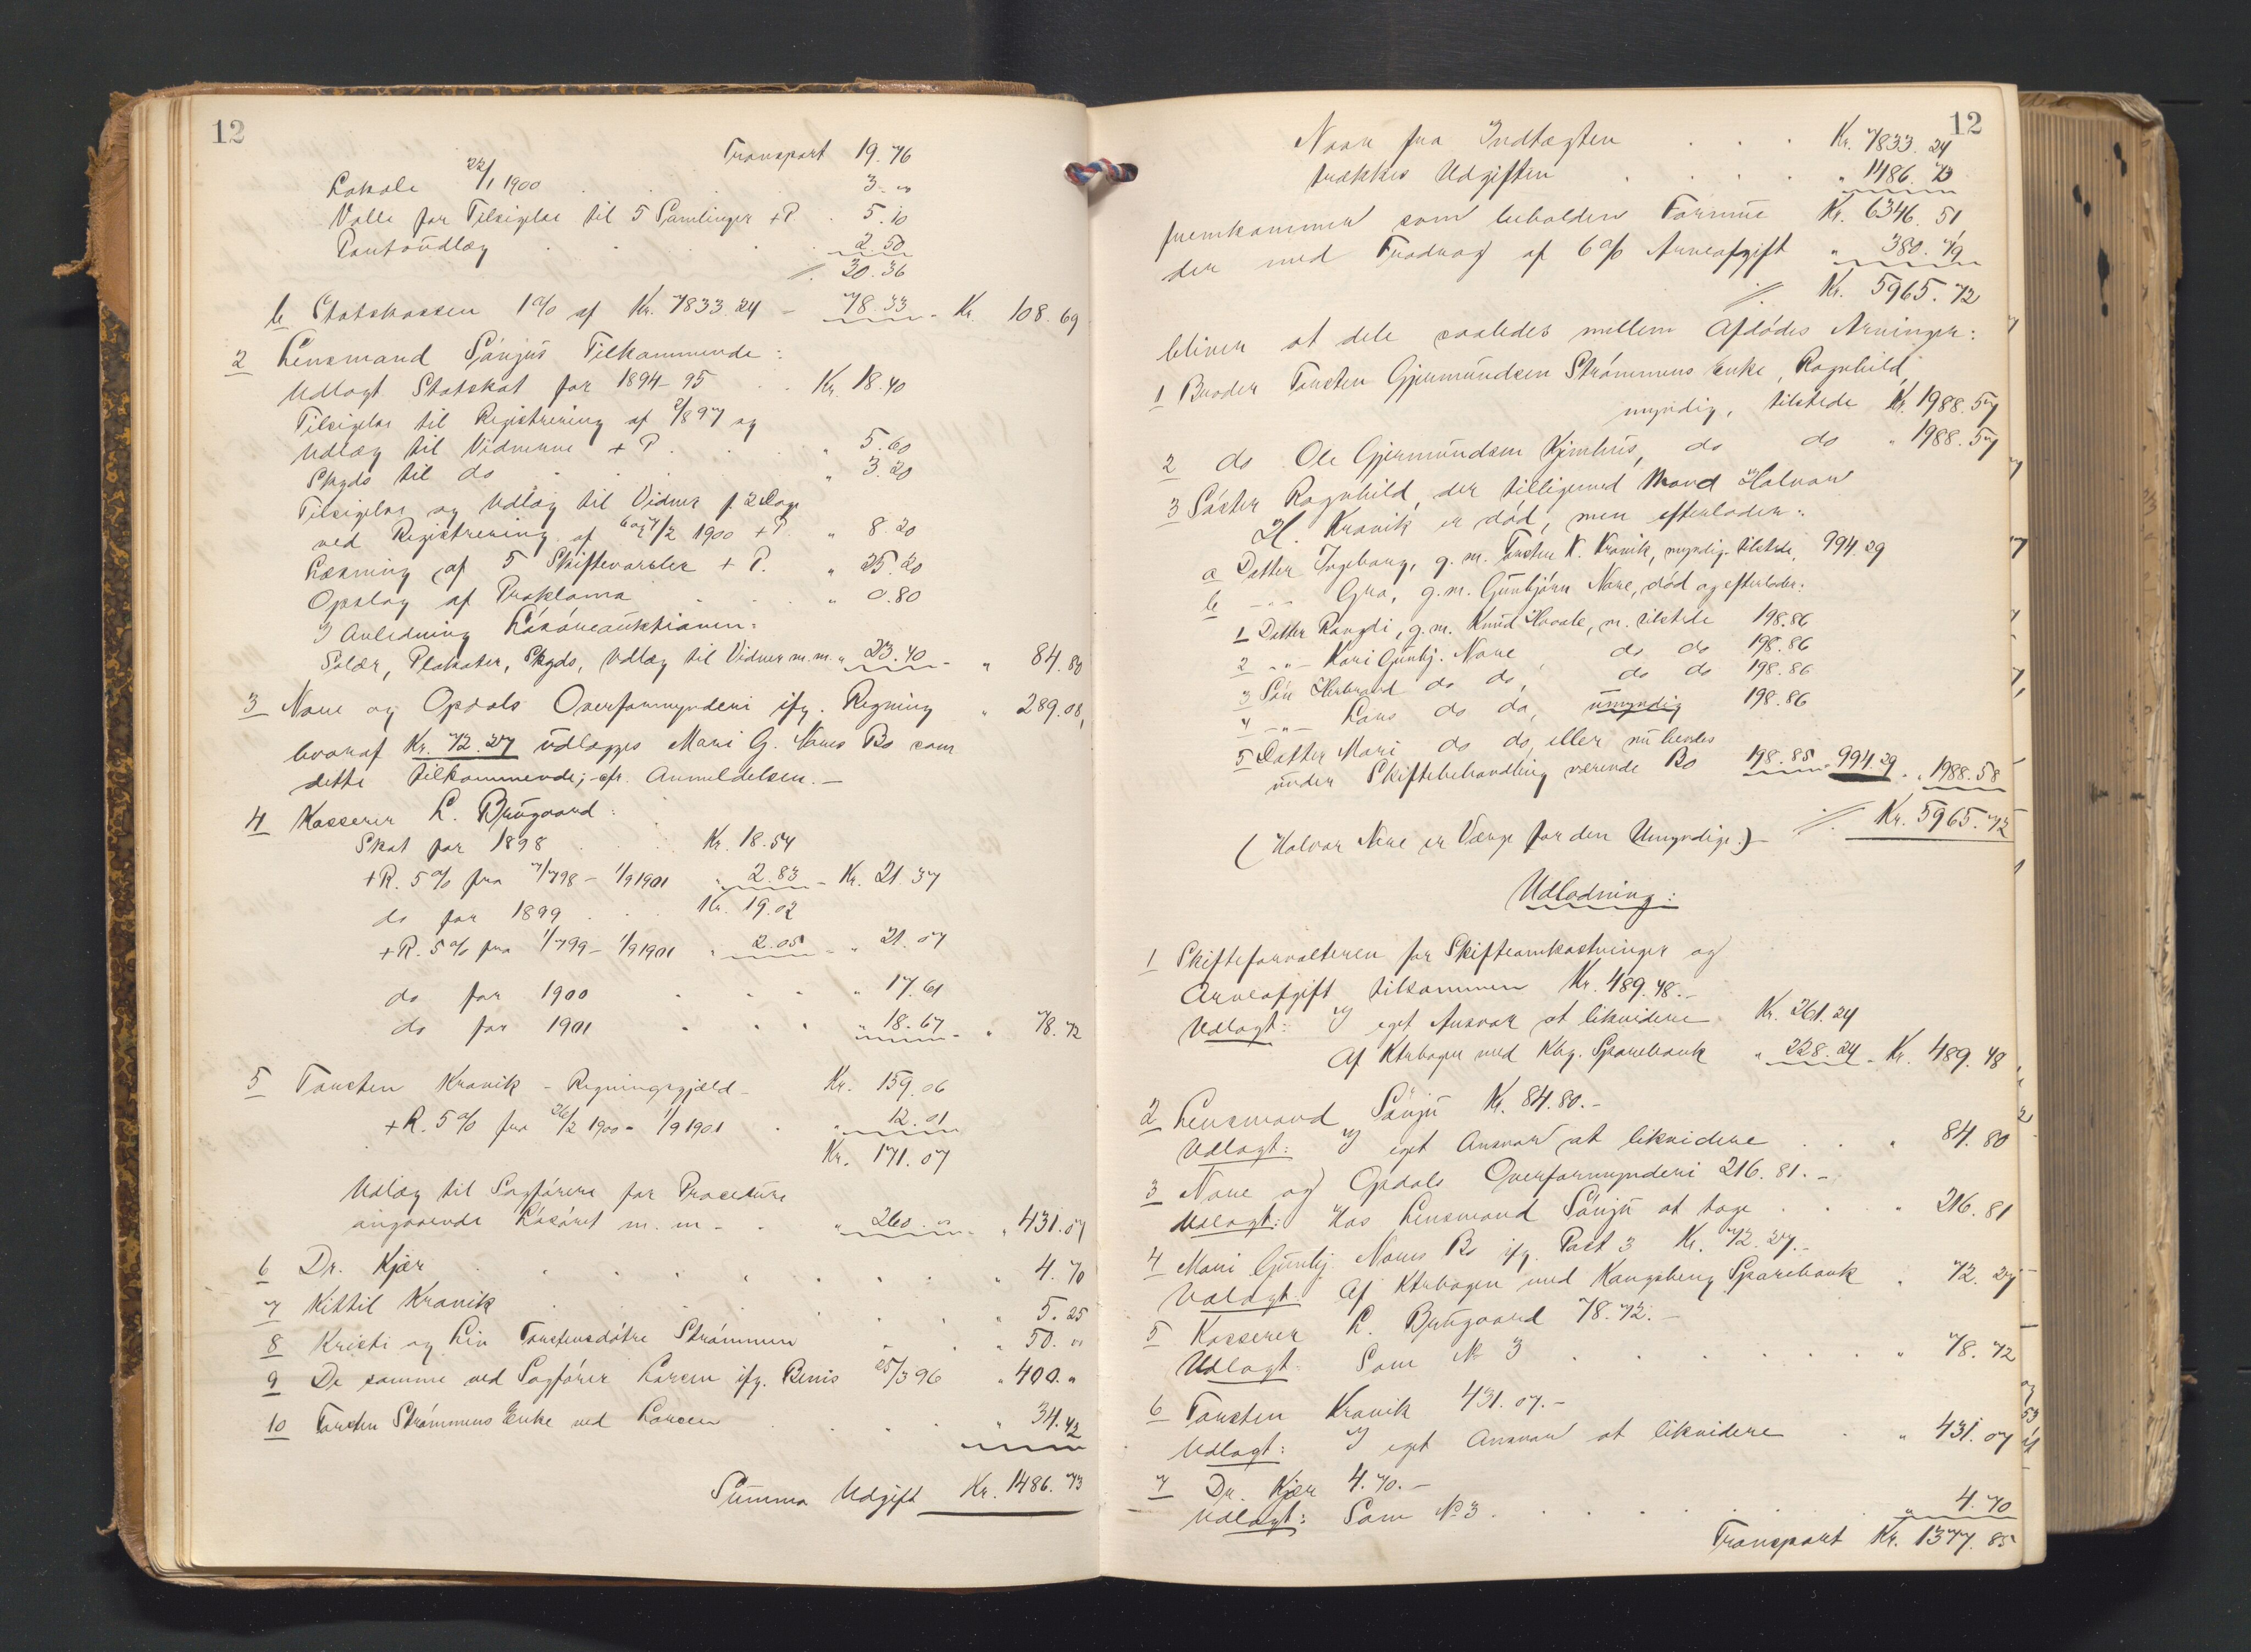 12
Transport 19.76
Lokale 22/1 1900 . . . . 3. "
Volle for Tilsigelse til 5 Samlinger + P. . 5.10
Portoudlæg . . . . . 2.50
//. 30.36
b Statskassen 1 % af Kr. 7833.24 - 78.33 - Kr. 108.69
2 Lensmand Sönjus Tilkommende:
Udlagt Statskat for 1894-95 . . Kr. 18.40
Tilsigelse til Registrering af 2/8 97 og
Udlæg til Vidnerne + P. . . . " 5.60
Skyds til do . . . . " 3.20
Tilsigelse og Udlæg til Vidner f. 2 Dage
ved Registrering af 6 og 7/2 1900 + P. " 8.20
Læsning af 5 Skiftevarsler + P. " 25.20
Opslag af Proklama . . . " 0.80
I Anledning Lösöreauktionen:
Salær, Plakater, Skyds, Udlæg til Vidner m.m. " 23.40 - " 84.80
3 Nore og Opdals Overformynderi ifg. Regning " 289.08,
hvoraf Kr. 72.27 udlægges Mari G. Nores Bo som
dette tilkommende; cfr. Anmeldelsen. -
4 Kasserer L. Brugaard:
Skat for 1898 . . . Kr. 18.54
+ R. 5 % fra 1/7 98 - 1/9 1901 " 2.83 - Kr. 21.37
do for 1899 . . . Kr. 19.02
+ R. 5 % fra 1/7 99 - 1/9 1901 " 2.05 - " 21.07
do for 1900 . . . . " 17.61
do for 1901 . . . . " 18.67 - " 78.72
5 Torsten Kravik - Regningsgjæld - Kr. 159.06
+ R. 5 % fra 26/2 1900 - 1/9 1901 . " 12.01
Kr. 171.07
Udlæg til Sagförere for Procedure
angaaende Lösöret m. m - . " 260. " - " 431.07
6 Dr. Kjær . . . . . . . . " 4.70
7 Kittil Kravik . . . . . . . " 5.25
8 Kristi og Liv Torstensdötre Strömmen . . " 50. "
9 De samme ved Sagförer Larsen ifg. Bevis 25/3 96 " 400. "
10 Torsten Strömmens Enke ved Larsen . . . . " 34.42
Summa Udgift Kr. 1486.73
12
Naar fra Indtægten . . . Kr. 7833.24
trækkes Udgiften . . . . . " 1486.73
fremkommer som beholden Formue Kr. 6346.51
der med Fradrag af 6 % Arveafgift " 380.79
//. Kr. 5965.72
bliver at dele saaledes mellem Aflödes Arvinger:
1 Broder Torsten Gjermundsen Strömmens Enke, Ragnhild,
myndig, tilstede Kr. 1988.57
2 do Ole Gjermundsen Kjimhus, do do " 1988.57
3 Söster Ragnhild, der tilligemed Mand Halvor
H. Kravik er död, men efterlader:
a Datter Ingeborg, g. m. Torsten K. Kravik, myndig. tilstede, 994.29
b - " - Gro, g. m. Gunbjörn Nore, död og efterlader:
1 Datter Rangdi, g. m. Knud Hovale, m. tilstede 198.86
2 - " - Kari Gunbj. Nore, do do 198.86
3 Sön Herbrand do do, do do 198.86
4 - " - Lars do do, umyndig 198.86
5 Datter Mari do do, eller nu hendes
under Skiftebehandling værende Bo 198.85 - 994.29 - " 1988.58
//. Kr. 5965.72
(Halvor Nore er Værge for den Umyndige.) -
Udlodning:
1 Skifteforvalteren for Skifteomkostninger og
Arveafgift tilkommer Kr. 489.48. -
Udlagt: I eget Ansvar at likvidere Kr. 261.24
Af Ktrbogen med Kbg. Sparebank " 228.24 - Kr. 489.48
2 Lensmand Sönju Kr. 84.80. -
Udlagt: I eget Ansvar at likvidere . . . " 84.80
3 Nore og Opdals Overformynderi 216.81. -
Udlagt: Hos Lensmand Sönju at tage . . . . " 216.81
4 Mari Gunbj. Nores Bo ifg. Post 3 Kr. 72.27. -
Udlagt: Af Ktrbogen med Kongsberg Sparebank " 72.27
5 Kasserer L. Brugaard 78.72. -
Udlagt: Som № 3 . . . . . . . " 78.72
6 Torsten Kravik 431.07. -
Udlagt: I eget Ansvar at likvidere . " 431.07
7 Dr. Kjær 4.70. -
Udlagt: Som № 3 . . . . . . . " 4.70
Transport Kr. 1377.85